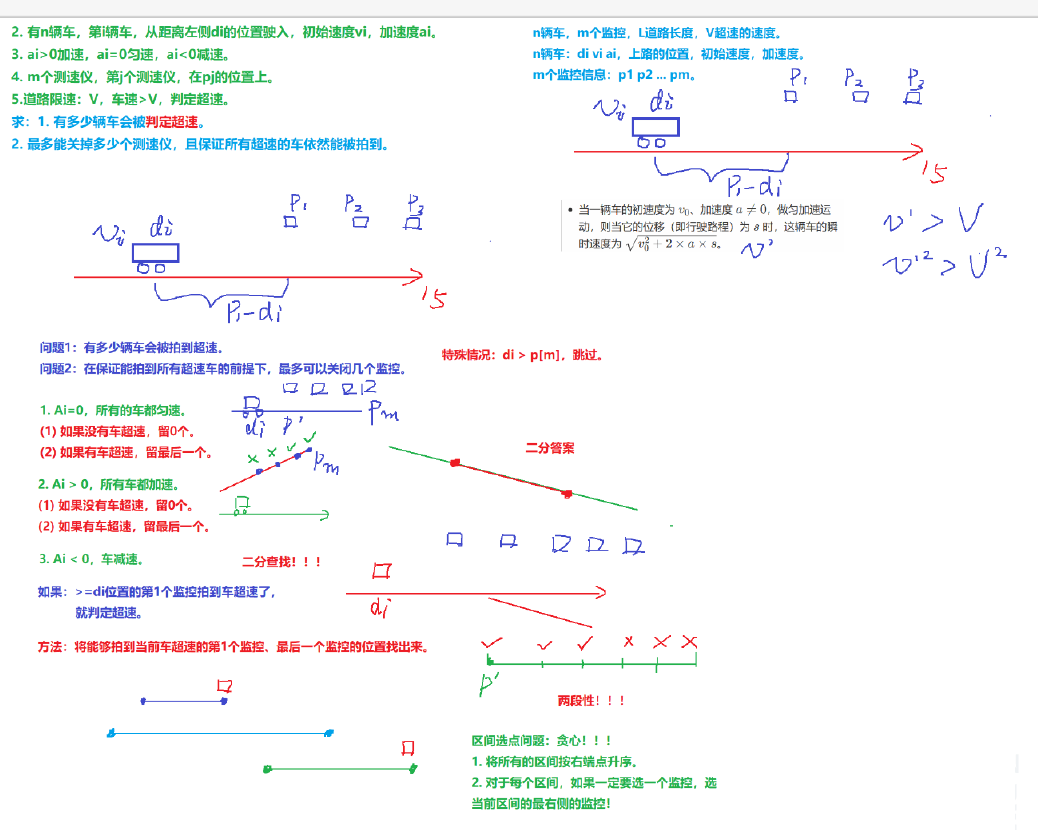 2. 有n辆车，第i辆车，从距离左侧di的位置驶入，初始速度vi，加速度ai。
3. ai>0加速，ai=0匀速，ai<0减速。
4. m个测速仪，第j个测速仪，在pj的位置上。
5.道路限速：V，车速>V，判定超速。
求：1. 有多少辆车会被判定超速。
2. 最多能关掉多少个测速仪，且保证所有超速的车依然能被拍到。
n辆车，m个监控，L道路长度，V超速的速度。
n辆车：di vi ai，上路的位置，初始速度，加速度。
m个监控信息：p1 p2 ... pm。
P1 P2 P3
Vi di
15
P1-di
• 当一辆车的初速度为 v₀、加速度 a ≠ 0，做匀加速运
动，则当它的位移（即行驶路程）为 s 时，这辆车的瞬
时速度为 √(v₀² + 2 × a × s)。
v'
v' > V
v'² > V²
P1 P2 P3
Vi di
15
P1-di
问题1：有多少辆车会被拍到超速。
问题2：在保证能拍到所有超速车的前提下，最多可以关闭几个监控。
特殊情况：di > p[m]，跳过。
1. Ai=0，所有的车都匀速。
(1) 如果没有车超速，留0个。
(2) 如果有车超速，留最后一个。
di p' Pm
Pm
2. Ai > 0，所有车都加速。
(1) 如果没有车超速，留0个。
(2) 如果有车超速，留最后一个。
二分答案
3. Ai < 0，车减速。
二分查找！！！
如果：>=di位置的第1个监控拍到车超速了，
就判定超速。
di
方法：将能够拍到当前车超速的第1个监控、最后一个监控的位置找出来。
p'
两段性！！！
区间选点问题：贪心！！！
1. 将所有的区间按右端点升序。
2. 对于每个区间，如果一定要选一个监控，选
当前区间的最右侧的监控！